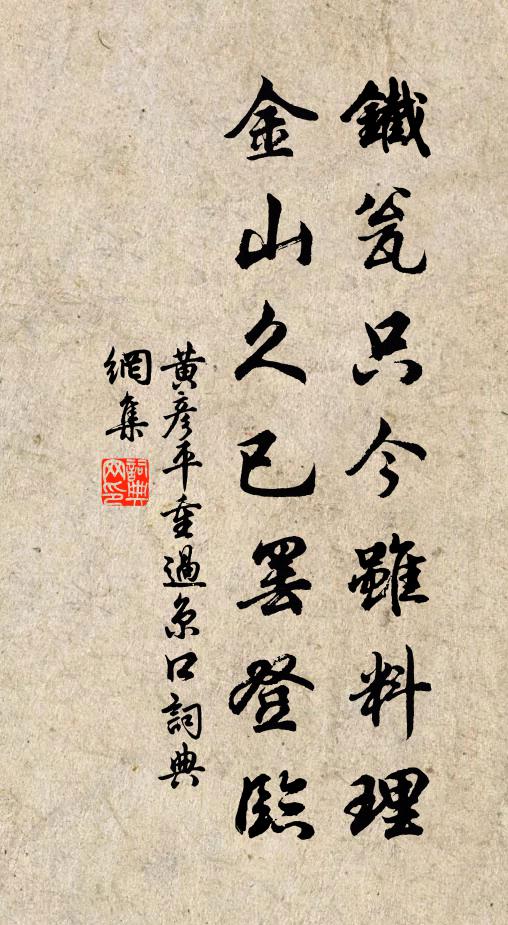 鐵瓮只今雖料理
金山久已罢登臨
黃彥平重過京口詞典
網集
詞典網印